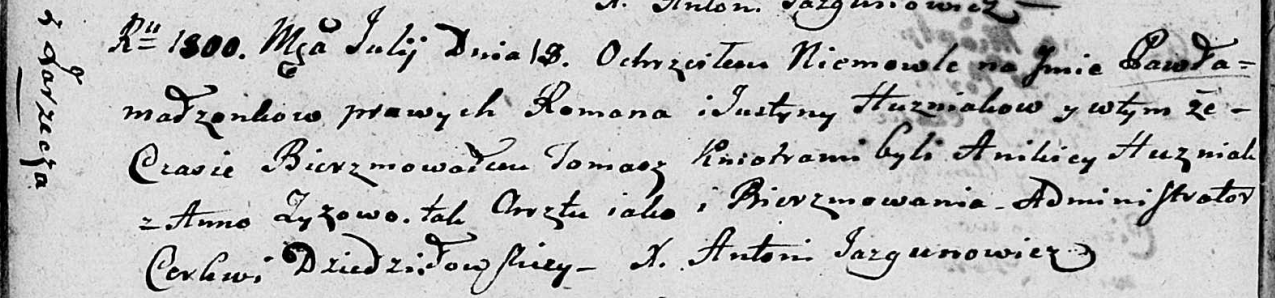 X. Anton. Jazgunowicz
z Zarzecza
Ru 1800. Mca Julij Dnia 18. Ochrzciłem Niemowle na Jmie Pawła =
małżonkow prawych Romana i Justyny Huzniakow y wtym że -
Czasie Bierzmowałem Tomasz Kmotrami byli Anikiey Huzniak
z Anno Zyzowo. tak Chrztu iako i Bierzmowania - Administrator
Cerkwi Dziedziłowskiey - X. Antoni Jazgunowicz